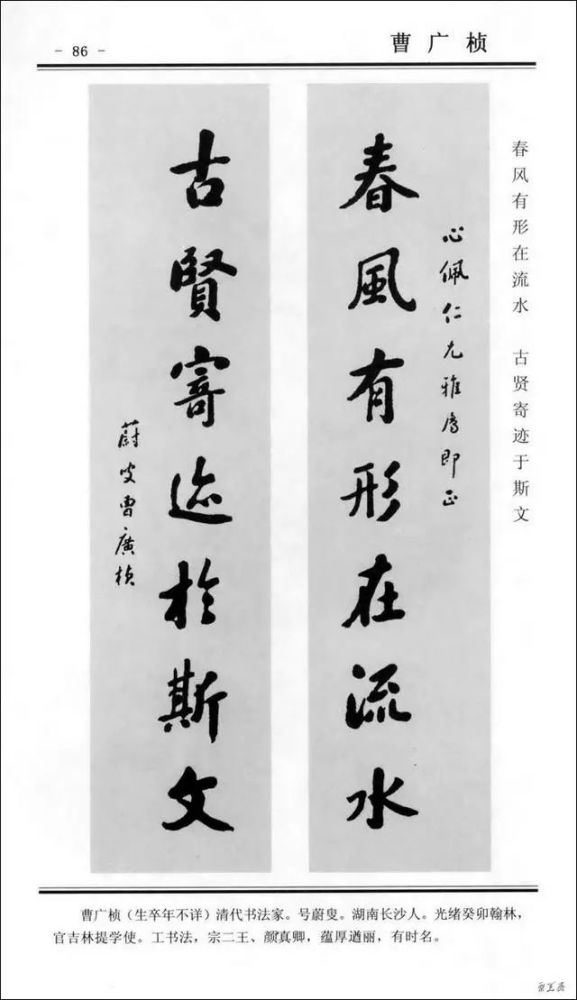 - 86 -
曹广桢
春风有形在流水 古贤寄迹于斯文
心佩仁尤雅属即正
春風有形在流水
古賢寄迹於斯文
蔚叟曹廣楨
曹广桢（生卒年不详）清代书法家。号蔚叟。湖南长沙人。光绪癸卯翰林，
官吉林提学使。工书法，宗二王、颜真卿，蕴厚遒丽，有时名。